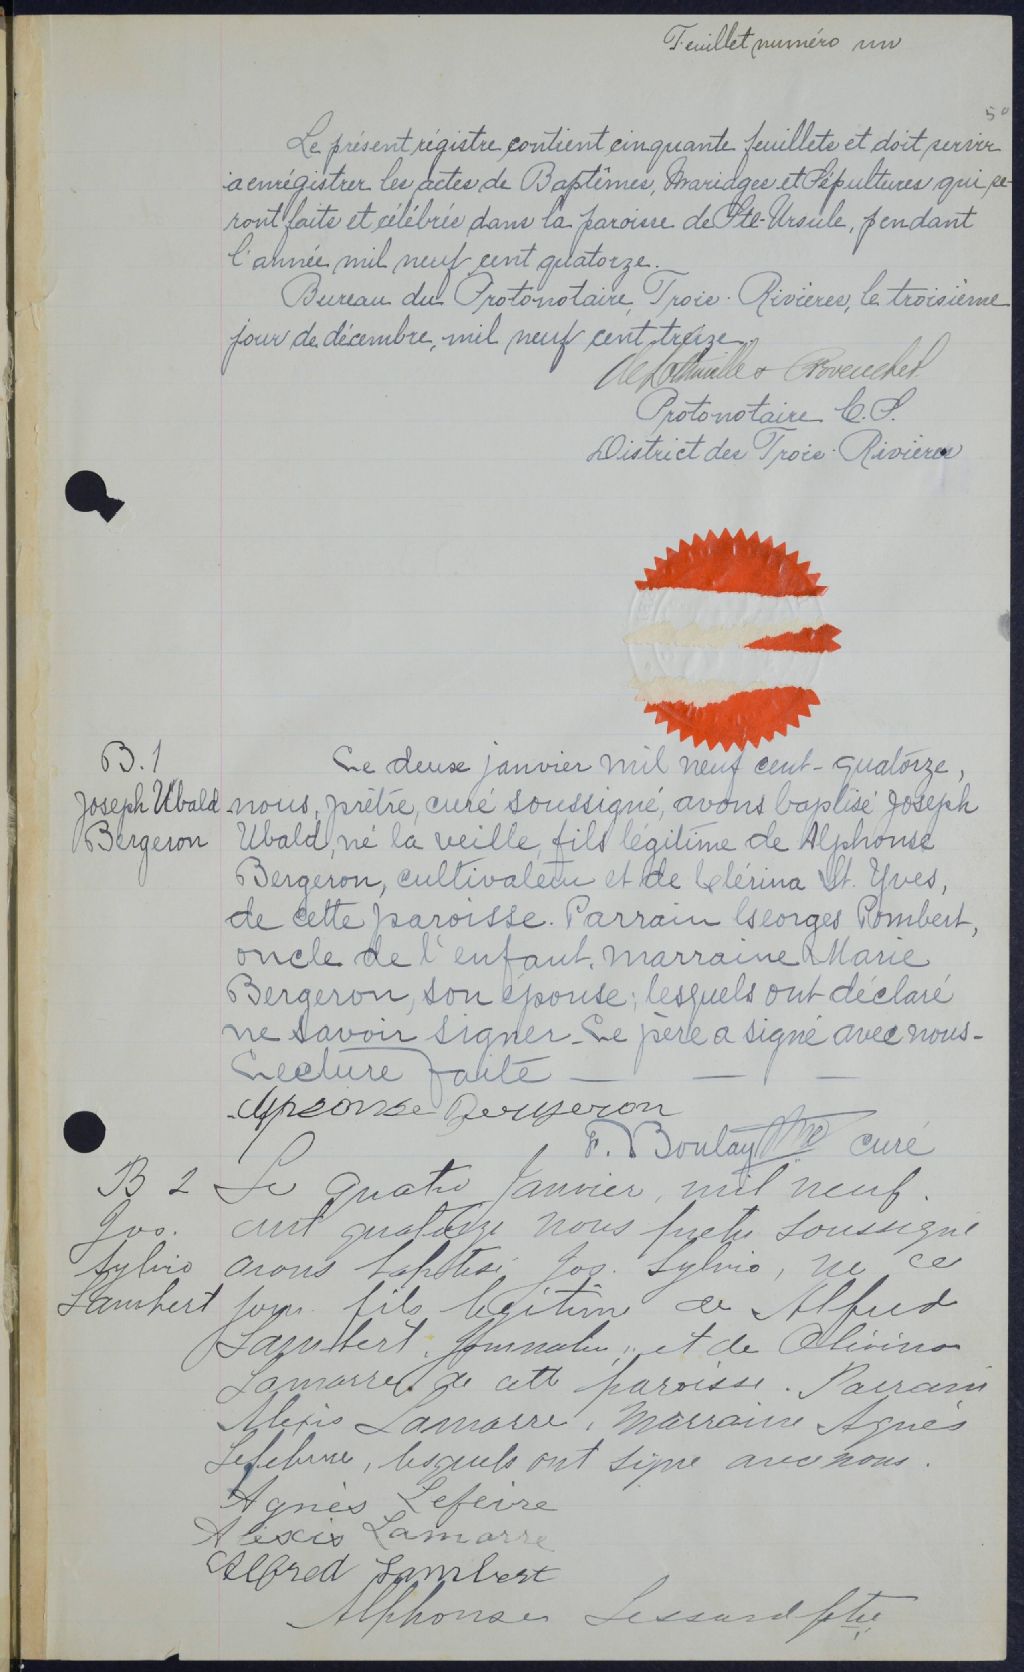 Feuillet numéro un
50
Le présent régistre contient cinquante feuillets et doit servir
a enrégistrer les actes de Baptêmes, Mariages et Sépultures qui se-
ront faits et célébrés dans la paroisse de Ste-Ursule, pendant
l'année mil neuf cent quatorze.
Bureau du Protonotaire, Trois-Rivières, le troisième
jour de décembre, mil neuf cent treize.
Protonotaire C.S.
District des Trois-Rivières
B.1
Joseph Ubald
Bergeron
Le deux janvier mil neuf cent-quatorze,
nous, prêtre, curé soussigné, avons baptisé Joseph
Ubald, né la veille, fils légitime de Alphonse
Bergeron, cultivateur et de Clérina St. Yves,
de cette paroisse. Parrain Georges Pombert,
oncle de l'enfant, marraine Marie
Bergeron, son épouse; lesquels ont déclaré
ne savoir signer. Le père a signé avec nous-
Lecture faite — — —
Alphonse Bergeron
F. Boulay Ptre curé
B 2
Jos.
Sylvio
Lambert
Le quatre Janvier, mil neuf
cent quatorze nous prêtre soussigné
avons baptisé Jos. Sylvio, né ce
jour fils légitime de Alfred
Lambert, Journalier, et de Olivina
Lamarre de cette paroisse. Parrain
Alexis Lamarre, Marraine Agnès
Lefebvre, lesquels ont signé avec nous.
Agnès Lefeivre
Alexis Lamarre
Alfred Lambert
Alphonse Lessard ptre